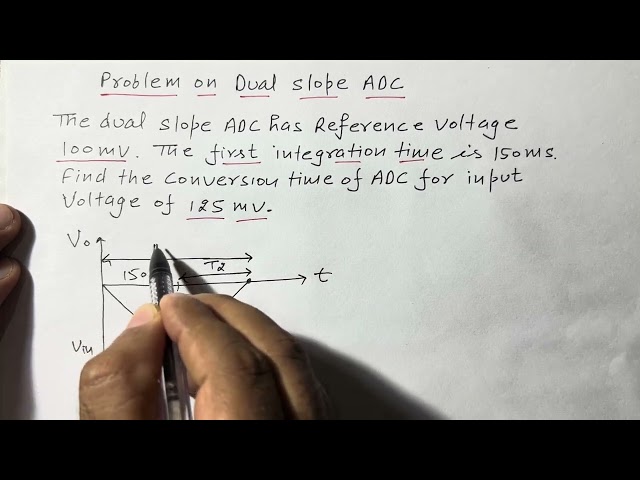 Problem on Dual slope ADC
The dual slope ADC has Reference Voltage
100mv. The first integration time is 150ms.
Find the conversion time of ADC for input
Voltage of 125 mv.
Vo
150
T2
t
Vin